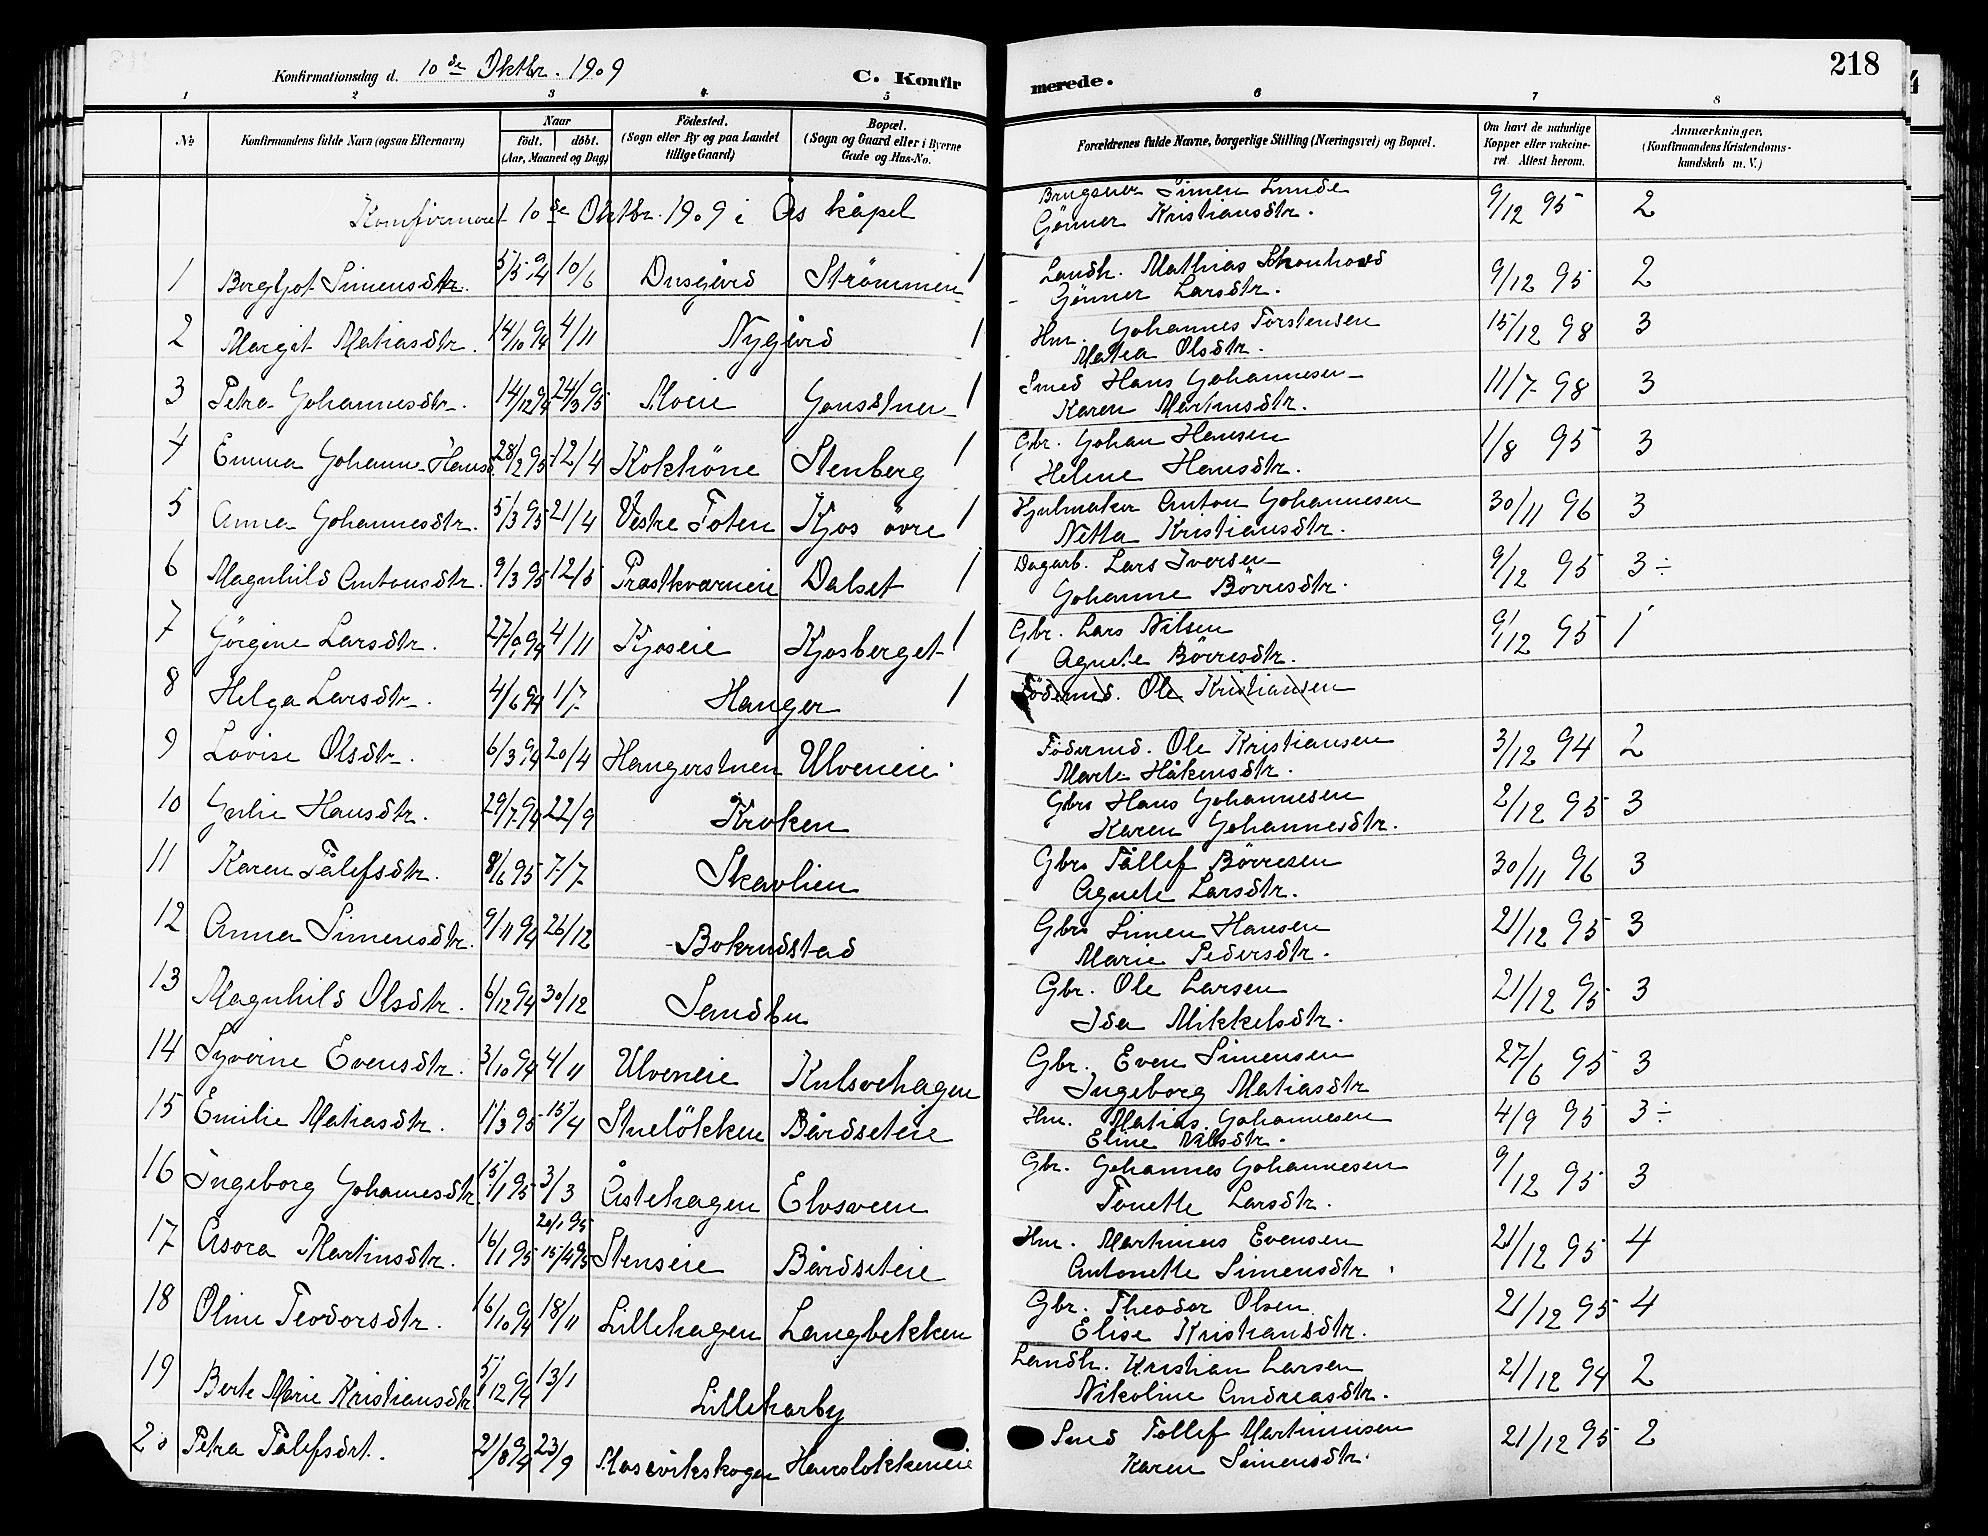 218
Konfirmationsdag d. 10de Oktbr. 1909
C. Konfirmerede.
1 2 3 4 5 6 7 8
No
Konfirmandens fulde Navn (ogsaa Efternavn)
Naar
födt. döbt.
(Aar, Maaned og Dag)
Födested.
(Sogn eller By og paa Landet
tillige Gaard)
Bopæl.
(Sogn og Gaard eller i Byerne
Gade og Hus-No.
Forældrenes fulde Navne, borgerlige Stilling (Næringsvei) og Bopæl.
Om havt de naturlige
Kopper eller vakcine-
ret. Attest herom.
Anmærkninger,
(Konfirmandens Kristendoms-
kundskab m. V.)
Konfirmeret 10de Oktbr. 1909 i Ås kapel
Brugseier Simen Lunde 9/12 95 2
Gönner Kristiansdtr.
1 Bergljot Simensdtr. 5/5 94 10/6 Dusgård Strømmen 1
Landh. Mathias Skonhovd 9/12 95 2
Gönner Larsdtr.
2 Margit Matiasdtr. 14/10 94 4/11 Nygård 1
Hm. Johannes Torstensen 15/12 98 3
Matea Olsdtr.
3 Petra Johannesdtr. 14/12 94 24/3 95 Moeie 1
Smed Hans Johannesen 11/7 98 3
Karen Martinusdtr.
4 Emma Johanne Hansd. 28/2 95 12/4 Stenberg 1
Gbr. Johan Hansen 1/8 95 3
Helene Hansdtr.
5 Anna Johannesdtr. 5/3 95 21/4 Vestre Toten Kjos övre 1
Hjulmaker Anton Johannesen 30/11 96 3
Netta Kristiansdtr.
6 Magnhild Antonsdtr. 9/3 95 12/5 Prastkværneie Dalset 1
Dagarb. Lars Iversen 9/12 95 3÷
Johanne Börresdtr.
7 Jörgine Larsdtr. 4/11 Kjoseie Kjosberget 1
Gbr. Lars Nilsen 9/12 95 1
Agnete Börresdtr.
8 Helga Larsdtr. 4/6 94 1/7 Hanger 1
Födermd. Ole Kristiansen
9 Lovise Olsdtr. 6/3 94 20/4 Hangerstuen Ulveneie
Födermd. Ole Kristiansen 3/12 94 2
Marte Håkensdtr.
10 Julie Hansdtr. 29/7 94 22/9 Kroken
Gbr. Hans Johannesen 2/12 95 3
Karen Johannesdtr.
11 Karen Tålefsdtr. 8/6 95 7/7 Skavlien
Gbr. Tållef Börresen 30/11 96 3
Agnete Larsdtr.
12 Anna Simensdtr. 9/11 94 26/12 Bokrudstad
Gbr. Simen Hansen 21/12 95 3
Marie Pedersdtr.
13 Magnhild Olsdtr. 6/12 94 30/12 Sandbu
Gbr. Ole Larsen 21/12 95 3
Ida Mikkelsdtr.
14 Syverine Evensdtr. 3/10 94 4/11 Ulveneie Kulsvehagen
Gbr. Even Simensen 27/6 95 3
Ingeborg Matiasdtr
15 Emilie Matiasdtr. 1/3 95 15/4 Stuelökken Bårdseteie
Hm. Matias Johannesen 4/9 95 3÷
Eline Nilsdtr.
16 Ingeborg Johanesdtr. 15/1 95 3/3 Åstehagen Elvsveen
Gbr. Johannes Johannesen 9/12 95 3
Tonette Larsdtr.
17 Asora Martinsdtr. 16/1 95 20/1 95 15/4 95 Stenseie Bårdseteie
Hm. Martinus Evensen 21/12 95 4
Antonette Simensdtr.
18 Oline Teodorsdtr. 16/10 94 18/11 Lillehagen Langbekken
Gbr. Theodor Olsen 21/12 95 4
Elise Kristiansdtr.
19 Berte Marie Kristiansdtr. 5/12 94 13/1 Lillekarby
Landh. Kristian Larsen 21/12 94 2
Nikoline Andreasdtr.
20 Petra Tålefsdrt. 21/8 94 23/9
Smed Tollef Martinusen 21/12 95 2
Karen Simensdtr.